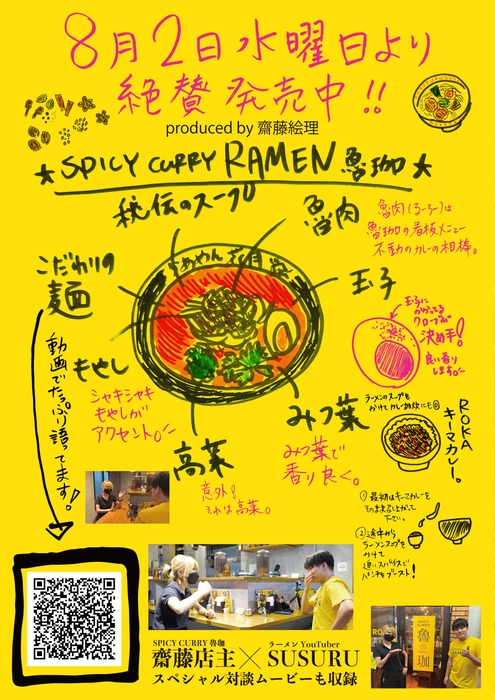 8月2日水曜日より
絶賛発売中!!
produced by 齋藤絵理
★SPICY CURRY RAMEN 魯珈★
秘伝のスープ
魯肉
魯肉(ルーロー)は
魯珈の看板メニュー
不動のカレーの相棒。
こだわりの
麺
らぁめん
玉子
玉子に
かかってる
クローブが
決め手!
良い香り
します。
動画でたっぷり語ってます!
もやし
シャキシャキ
もやしが
アクセント。
高菜
意外!
それは高菜。
みつ葉
みつ葉で
香り良く。
ラーメンのスープを
かけてカレー雑炊にも
ROKA
キーマカレー。
①最初はキーマカレーを
そのまま召し上がって
下さい。
②途中から
ラーメンスープを
かけて
追いスパイスで
パンチをブースト!
SPICY CURRY 魯珈
齋藤店主
×
ラーメン YouTuber
SUSURU
スペシャル対談ムービーも収録
SPICY
CURRY
魯
珈